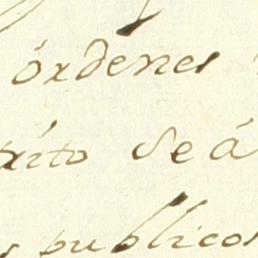 órdenes
xito Se á
publicos